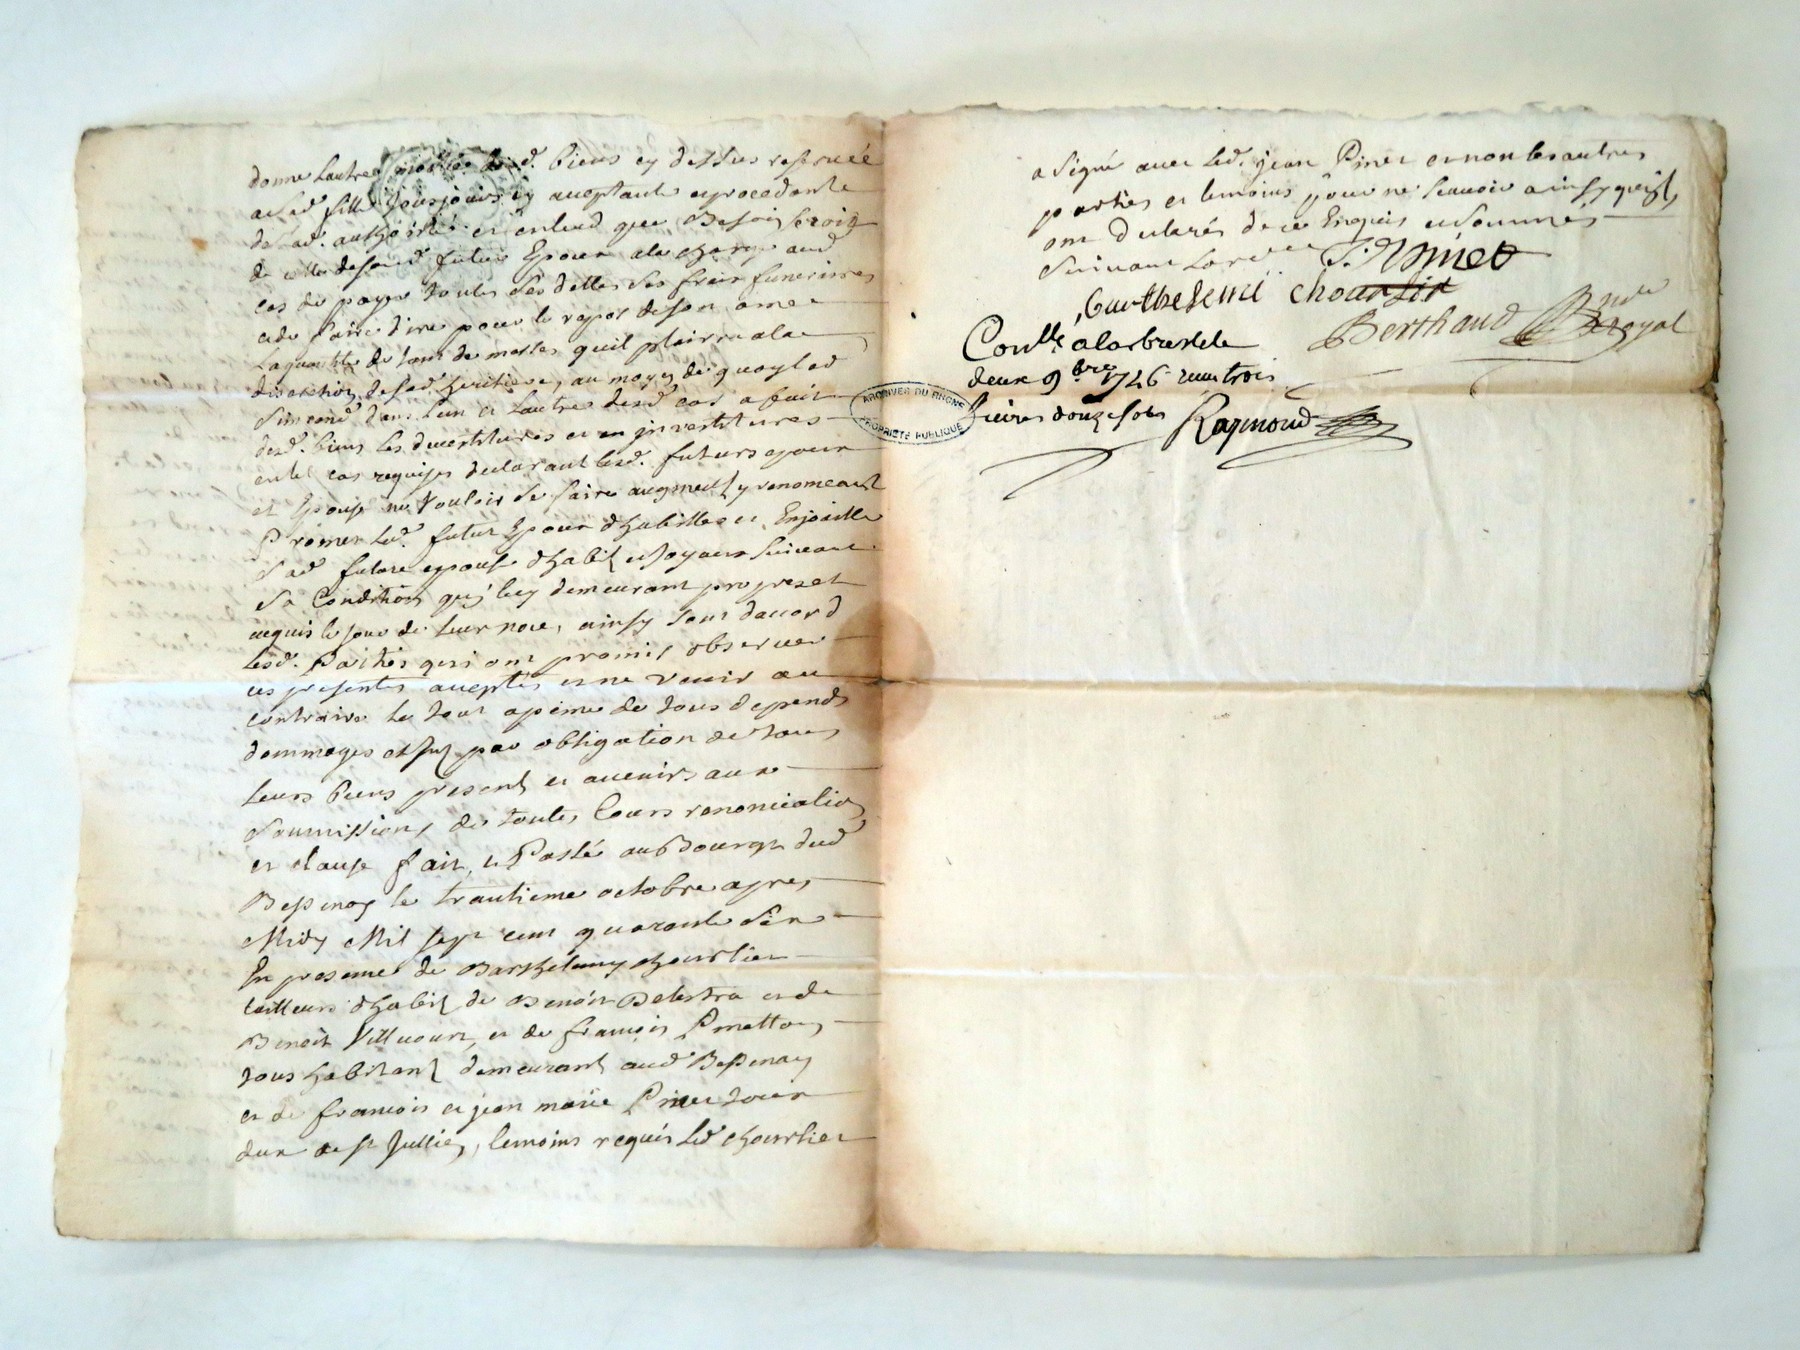 donne l'autre moitié desd. biens cy dessus reservée
a lad. fille toujours cy acceptante et procedante
de lad. authorité et entend que Besoin seroit
de celle desond. futur Epoux a la charge aud
cas de payer toutes ses dettes ses frais funeraires
et de faire dire pour le repos de son ame
la quantité de tant de messes quil plairra a la
discretion de lad. heritiere, au moyen de quoy led
Simond dans l'un et lautre desd. cas a fait
desd. biens les devestitures et en investitures
en tel cas requises declarant lesd. futurs epoux
et Epouse ne vouloir se faire augment y renonceant
Promet led. futur Epoux d'habiller et Enjoailler
sad. future epouse d'habits et Joyaux suivant
sa Condition qui luy demeurant propres et
acquis le jour de leur noce, ainsy sont daccord
lesd. Parties qui ont promis observer
ces presentes acceptés et ne venir au
contraire le tout a peine de tous depends
dommages et Jnt par obligation de tous
leurs biens presents et avenirs aux
soumissions de toutes Cours renonciation
et clause fait et Passé au Bourg dud
Bessenay le trantieme octobre apres
Midy Mil sept cent quarante six
En presence de Barthelemy chourlier
tailleurs d'habit de Benoit Balestra et de
Benoit Villecourt, et de françois Pinatton
tous habitants demeurant aud Bessenay
et de francois et jean marie Pinet tous
deux de st Jullien, temoins requis led chourlier
a signé avec led. jean Pinet et non les autres
parties et temoins pour ne scavoir ainsy quils
ont declarés de ce Enquis et sommés
suivant lord.ce J. Pinet
barthelemi chourlir
Berthaud Nre Royal
Conllé a larbresle
deux 9bre 1746 recu trois
livres douze sols Raymond
ARCHIVES DU RHONE
PROPRIETE PUBLIQUE